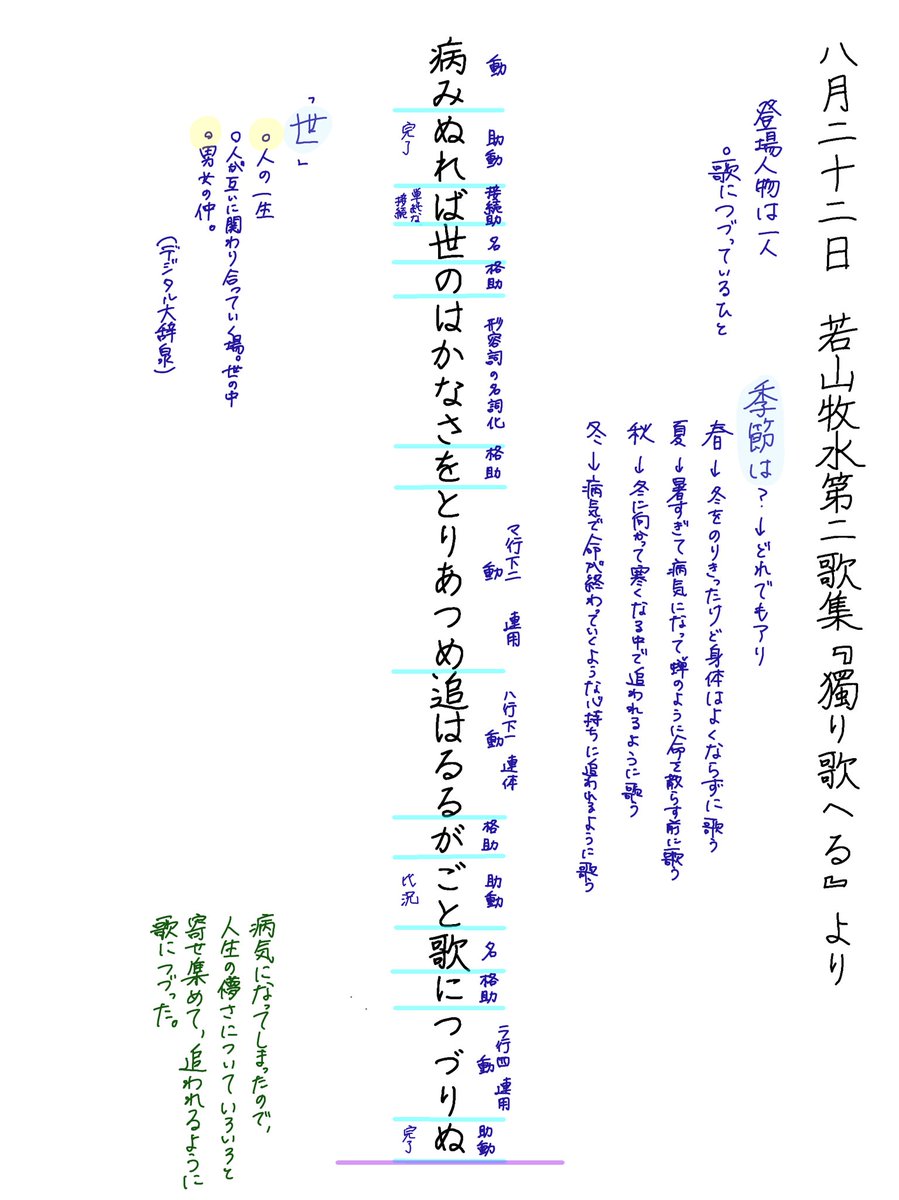 八月二十二日　若山牧水第二歌集『獨り歌へる』より
登場人物は一人
。歌につづっているひと
季節は？→どれでもアリ
春→冬をのりきったけど身体はよくならずに歌う
夏→暑すぎて病気になって蝉のように命を散らす前に歌う
秋→冬に向かって寒くなる中で追われるように歌う
冬→病気で命が終わっていくような心持ちに追われるように歌う
動
助動
接続助
名
格助
形容詞の名詞化
格助
マ行下二
動
連用
ハ行下一
動
連体
格助
助動
名
格助
ラ行四
動
連用
助動
病みぬれば世のはかなさをとりあつめ追はるるがごと歌につづりぬ
完了
単純な
接続
比況
完了
「世」
○人の一生
○人が互いに関わり合っていく場。世の中
○男女の仲。
（デジタル大辞泉）
病気になってしまったので、
人生の儚さについていろいろと
寄せ集めて、追われるように
歌につづった。